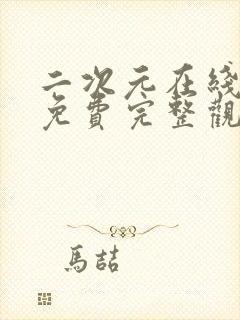 二次元在綫
免費完整觀
馬喆